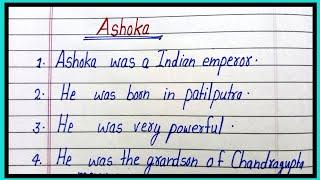 Ashoka
1. Ashoka was a Indian emperor.
2. He was born in patilputra.
3. He was very powerful.
4. He was the grandson of Chandragupta